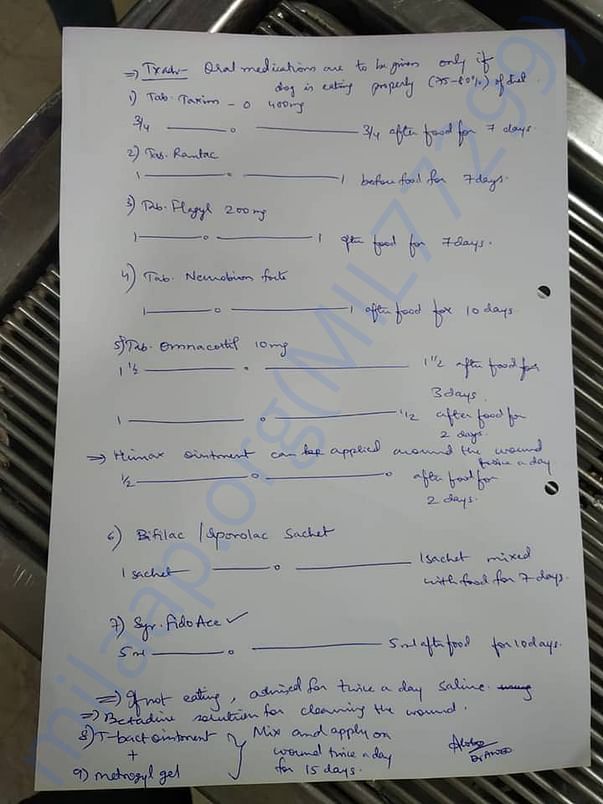 ⇒ Txadv- Oral medications are to be given only if
dog is eating properly (75-80%) of diet.
1) Tab. Taxim - O 400mg
3/4 —— o —— 3/4 after food for 7 days.
2) Tab. Rantac
1 —— o —— 1 before food for 7days.
3) Tab. Flagyl 200mg
1 —— o —— 1 after food for 7days.
4) Tab. Neurobion forte
1 —— o —— 1 after food for 10 days
5) Tab. Omnacortil 10mg
1 1/2 —— o —— 1 1/2 after food for
3days.
1 —— o —— 1/2 after food for
2 days.
⇒ Himax ointment can be applied around the wound
twice a day
1/2 —— o —— o after food for
2 days.
6) Bifilac / Sporolac Sachet
1 sachet —— o —— 1 sachet mixed
with food for 7 days.
7) Syr. Fido Ace ✓
5ml —— o —— 5ml after food for 10days.
⇒ If not eating, advised for twice a day saline.
⇒ Betadine solution for cleaning the wound.
8) T-bact ointment } Mix and apply on
+ wound twice a day
9) metrogyl gel for 15 days.
milaap.org(MIL77299)